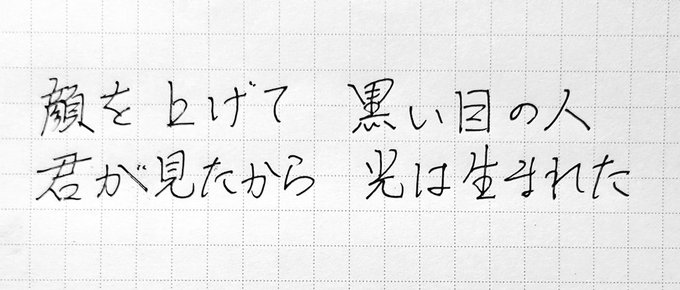 顔を上げて 黒い目の人
君が見たから 光は生まれた